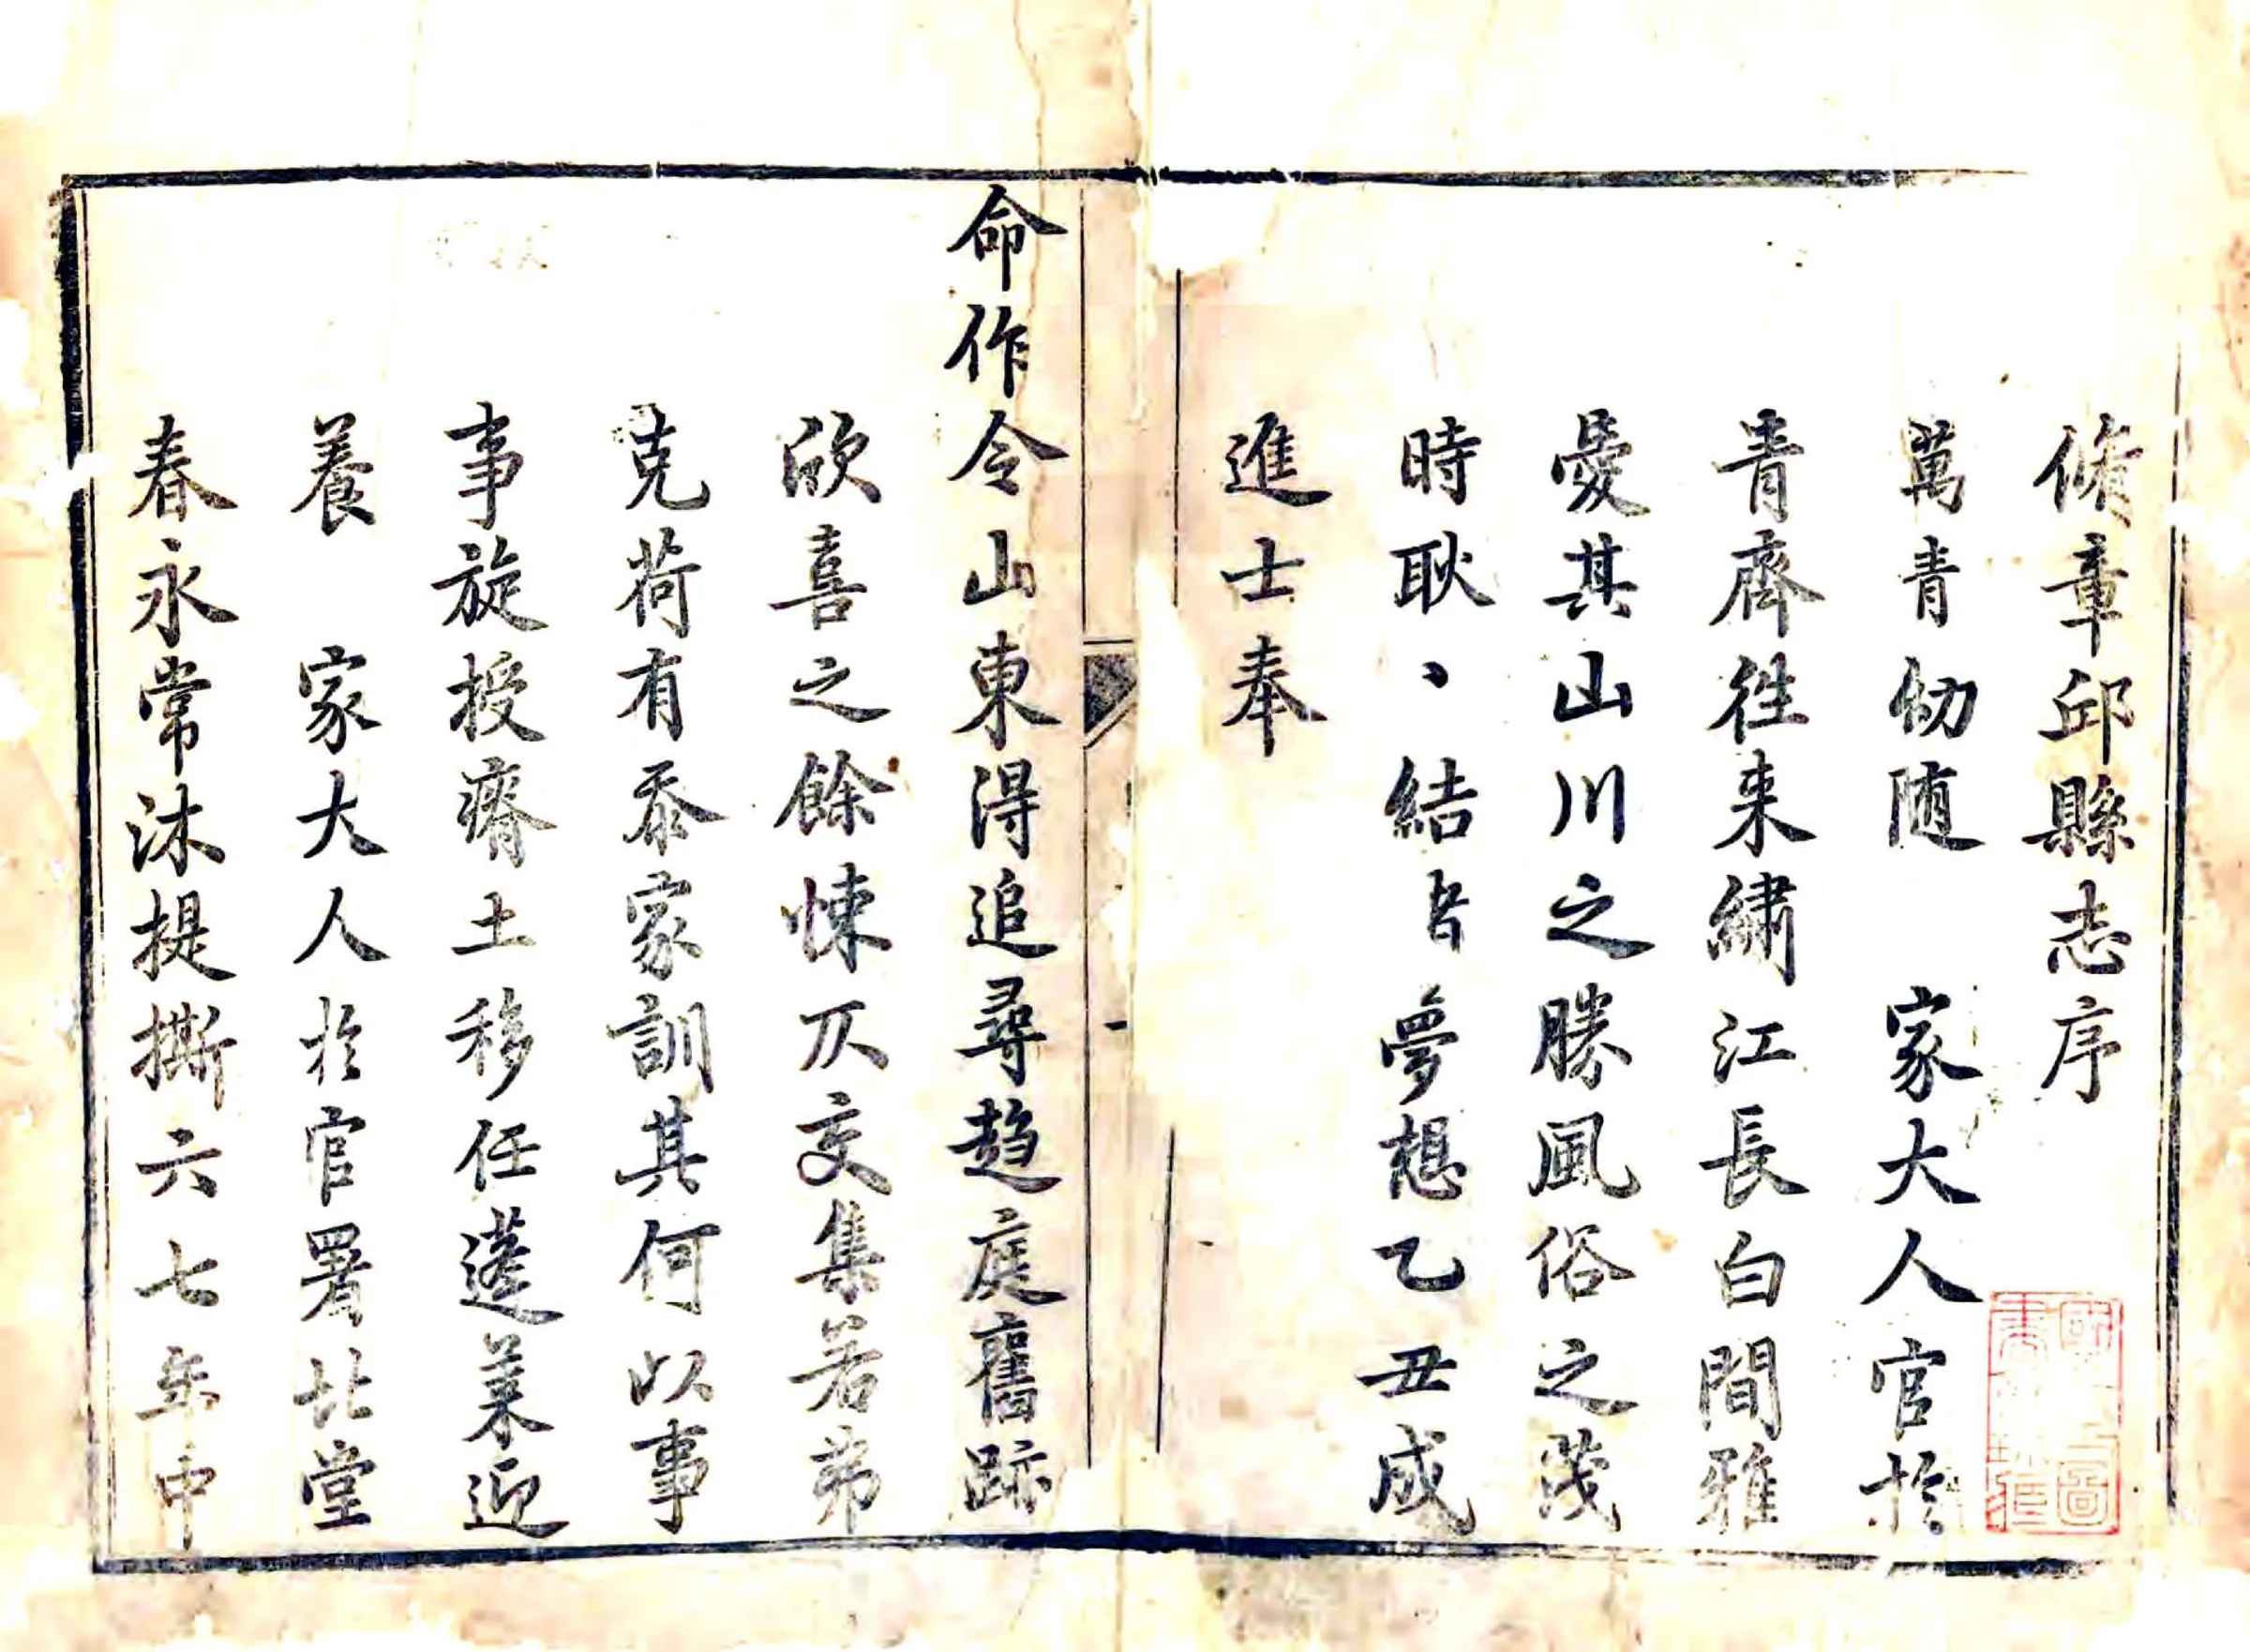 脩章邱縣志序
萬青幼随 家大人官扵
青齊徃来繡江長白間雅
愛其山川之勝風俗之茂
時耿、結旹夢想乙丑成
進士奉
命作令山東得追尋趋庭舊跡
欣喜之餘悚仄交集若弗
克荷有忝家訓其何以事
事旋授瘠土移任蓬莱迎
養 家大人扵官署北堂
春永常沐提撕六七年中